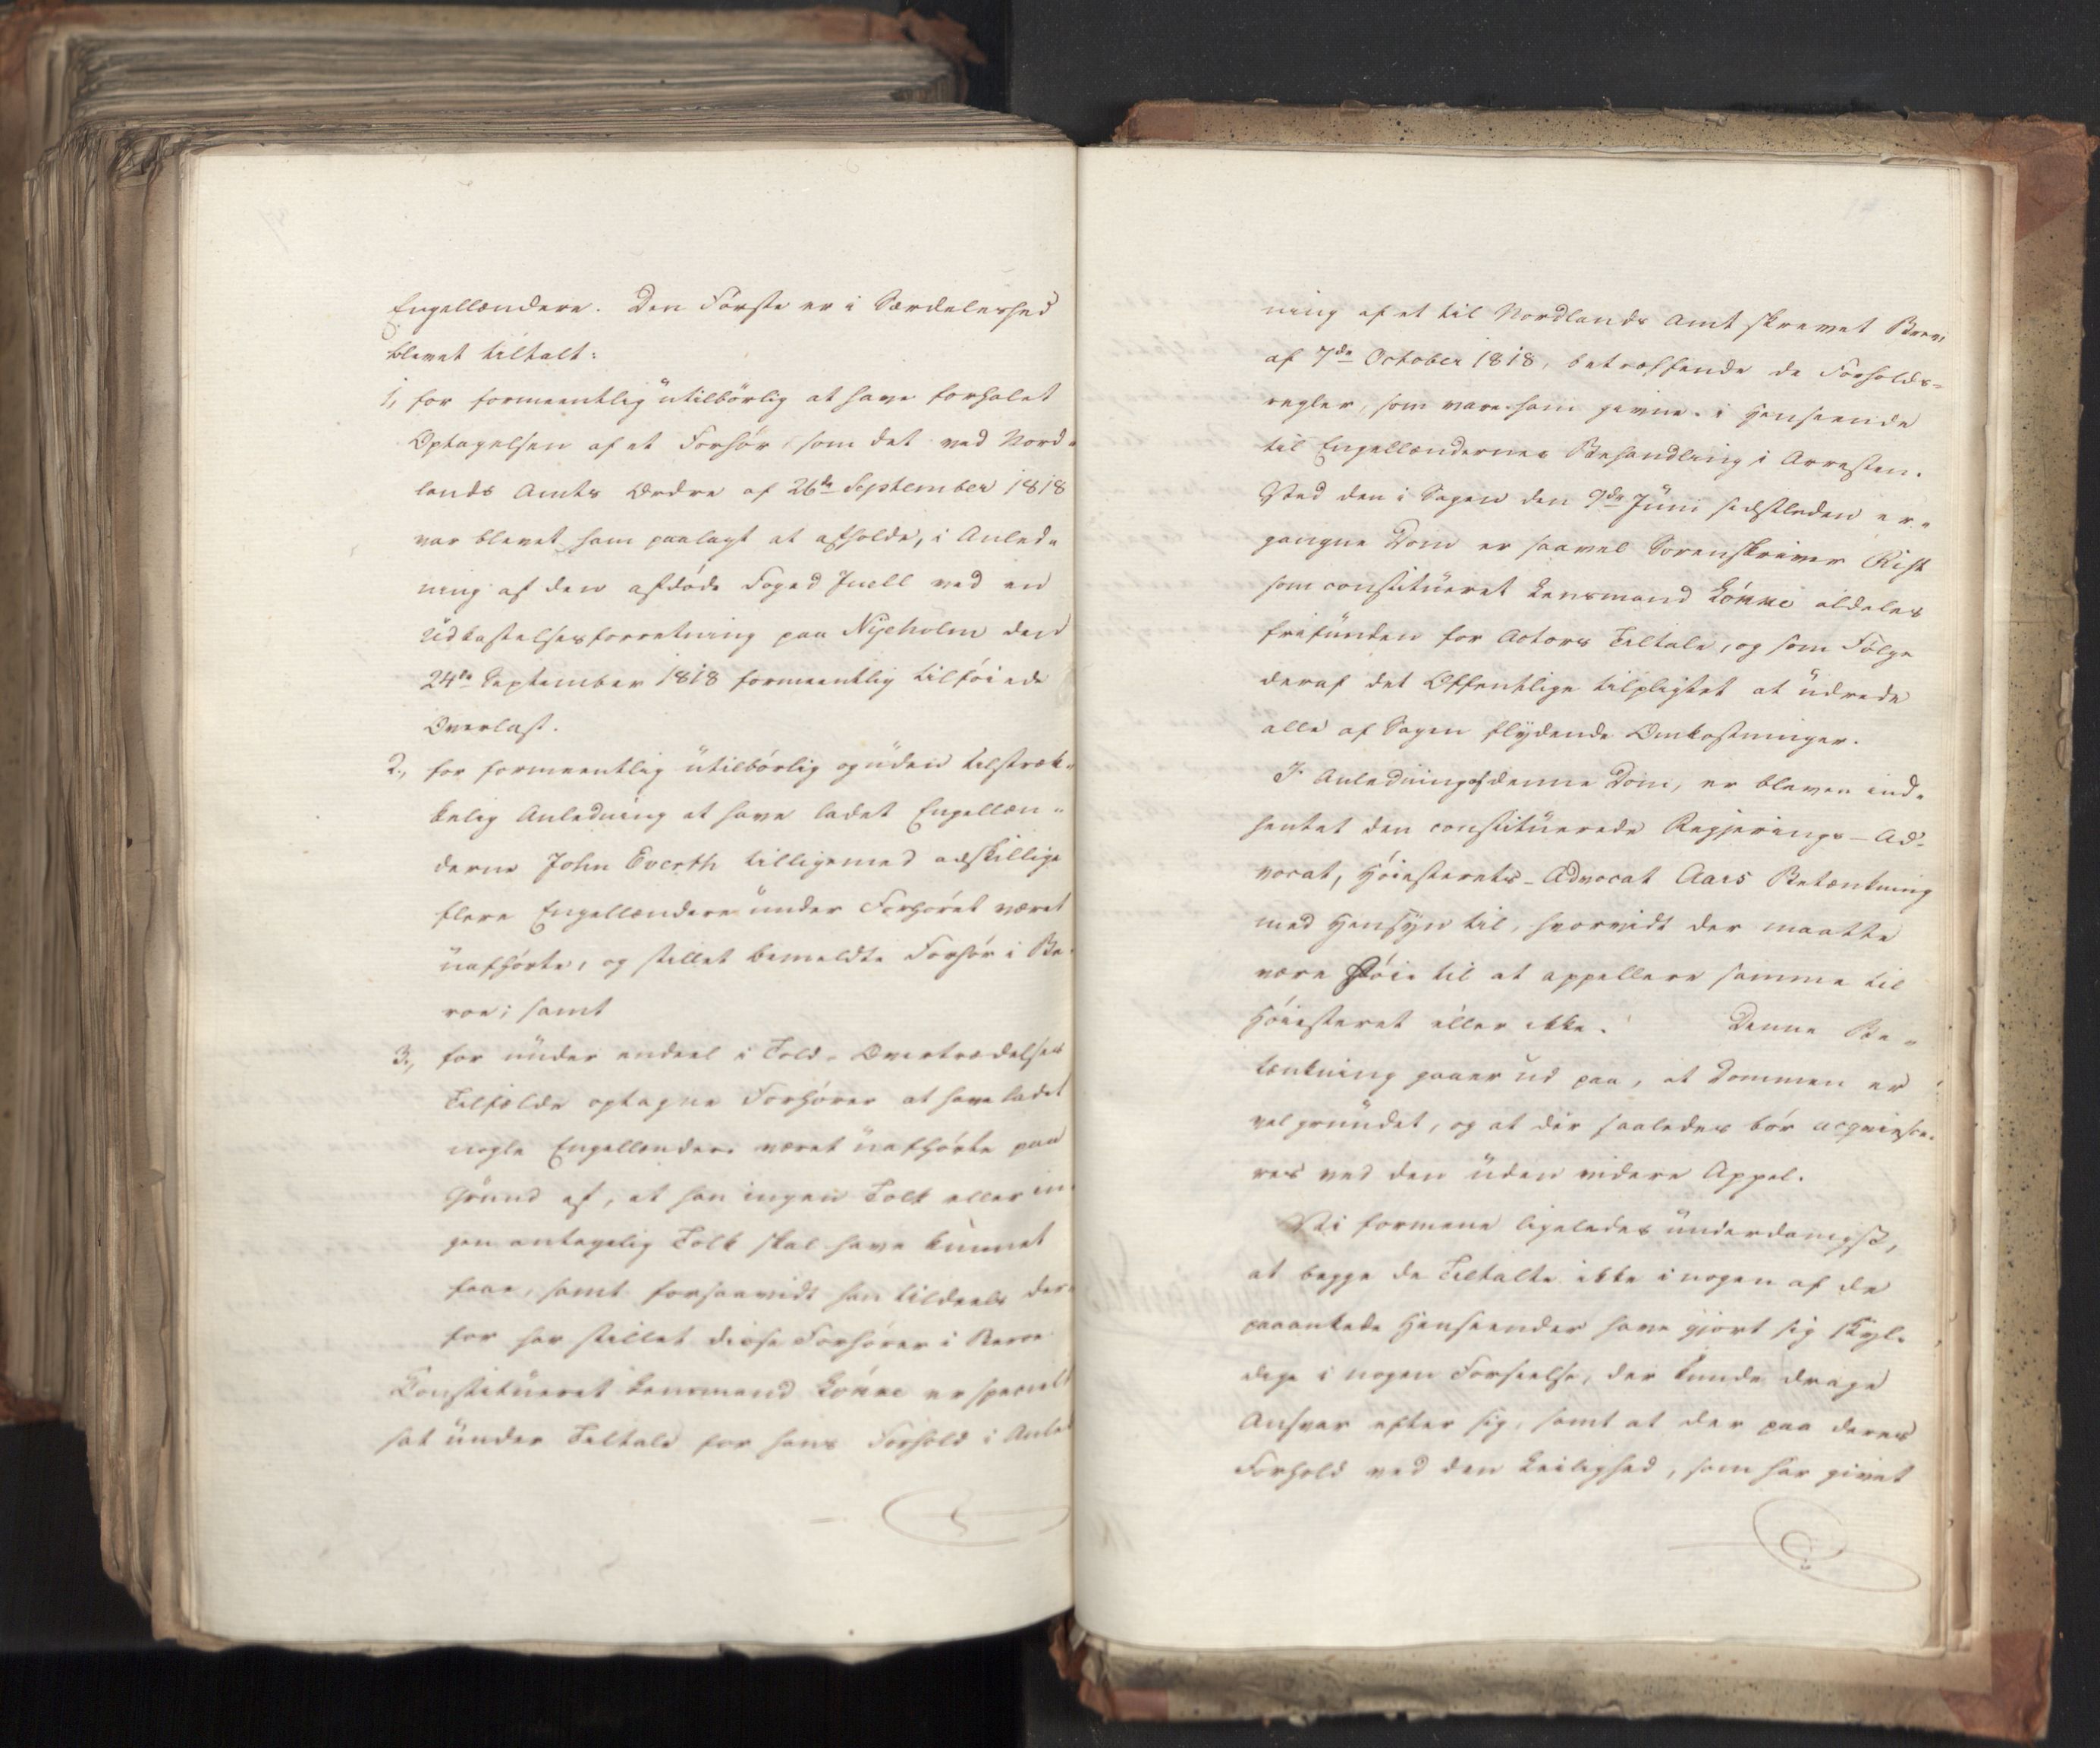 Engellændere. Den Første er i Særdeleshed
blevet tiltalt:
1, for formeentlig utilbørlig at have forhalet
Optagelsen af et Forhør, som det ved Nord-
lands Amts Ordre af 26de September 1818
var blevet ham paalagt at afholde, i Anled-
ning af den afdøde Foged Juell ved en
Udkastelsesforretning paa Nyeholm den
24de September 1818 formeentlig tilføiede
Overlast.
2, for formeentlig utilbørlig og uden tilstræk-
kelig Anledning at have ladet Engellæn-
derne John Everth tilligemed adskillige
flere Engellændere under Forhøret været
uafhørte, og stillet bemeldte Forhør i Be-
roe; samt
3, for under endeel i Told-Overtrædelses
Tilfælde optagne Forhører at have ladet
nogle Engellændere været uafhørte paa
Grund af, at han ingen Tolk eller in-
gen antagelig Tolk skal have kunnet
faae, samt forsaavidt han tildeels der-
for har stillet disse Forhører i Beroe.
Constitueret Lensmand Lønne er specielt
sat under Tiltale for hans Forhold i Anled-
ning af et til Nordlands Amt skrevet Brev
af 7de October 1818, betræffende de Forholds-
regler, som vare ham givne i Henseende
til Engellændernes Behandling i Arresten.
Ved den i Sagen den 9de Juni sidstleden er-
gangne Dom er saavel Sorenskriver Rist
som constitueret Lensmand Lønne aldeles
frifunden for Actors Tiltale, og som Følge
deraf det Offentlige tilpligtet at udrede
alle af Sagen flydende Omkostninger.
I Anledning af denne Dom, er bleven ind-
hentet den constituerede Regjerings-Ad-
vocat, Høiesterets-Advocat Aars Betænkning
med Hensyn til, hvorvidt der maatte
være Føie til at appellere samme til
Høiesteret eller ikke. Denne Be-
tænkning gaaer ud paa, at Dommen er
vel grundet, og at der saaledes bør acqviesce-
res ved den uden videre Appel.
Vi formene ligeledes underdanigst,
at begge de Tiltalte ikke i nogen af de
paaankede Henseender have gjort sig skyl-
dige i nogen Forseelse, der kunde drage
Ansvar efter sig, samt at der paa deres
Forhold ved den Leilighed, som har givet